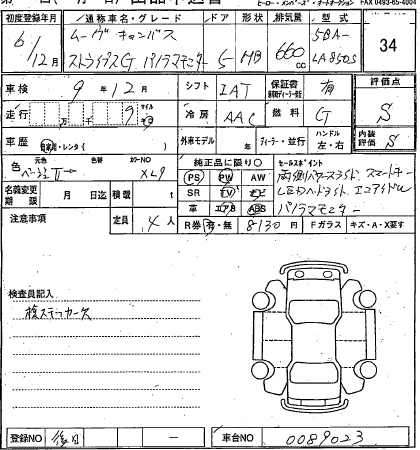 FAX 0493-65-4004
初度登録年月 通称車名・グレード ドア 形状 排気量 型式
6/12月 ムーヴキャンバス ストライプスG パノラマモニター 5 HB 660cc 5BA- LA850S 34
車検 9年12月 シフト IAT 保証書 有 評価点
走行 万 千 9 マイル 冷房 AAC 燃料 G S
車歴 自家用・レンタ( ) 外車モデル 年 ディーラー・並行 ハンドル 左・右 内装評価 S
色 元色 色替 カラーNO 純正品に限り○ セールスポイント
ベージュII→ XL9 PS PW AW 両側パワースライド、スマートキー
名義変更期限 月 日迄 積載 t SR TV ナビ LEDヘッドライト、エコアイドル
注意事項 定員 4人 革 エアB ABS パノラマモニター
R券 有・無 8130円 Fガラス キズ・A・X要す
検査員記入
検ステッカー欠
登録NO 後日 ー 車台NO 0089023